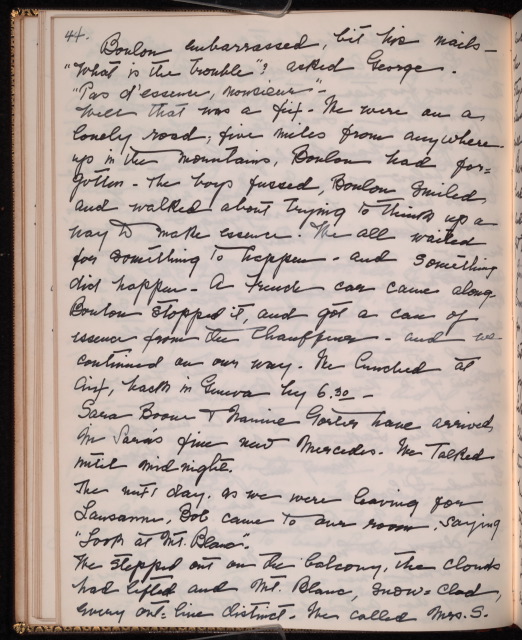 44.
Boulon embarrassed, bit his nails –
"What is the trouble"? asked George.
"Pas d'essence, monsieur".
Well that was a fix. We were on a
lonely road, five miles from anywhere
up in the mountains, Boulon had for=
gotten – The boys fussed, Boulon smiled
and walked about trying to think up a
way to make essence. We all waited
for something to happen – and something
did happen – A French car came along
Boulon stopped it, and got a can of
essence from the Chauffeur – and we
continued on our way. We lunched at
Aix, back in Geneva by 6.30 –
Sara Boone & Nannie have arrived
in Sara's fine new Mercedes. We talked
until midnight.
The next day. as we were leaving for
Lausanne, Bob came to our room, saying
"Look at Mt. Blanc".
We stepped out on the balcony, the clouds
had lifted and Mt. Blanc, snow=clad,
every out=line distinct. We called Mrs. S.